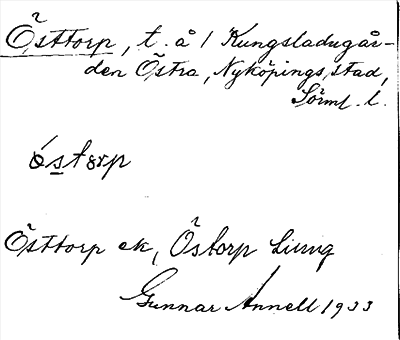 Östtorp, t. å 1 Kungsladugår-
den Östra, Nyköpings stad,
Sörml. l.
östorp
Östtorp ek, Östorp Ljung
Gunnar Annell 1933